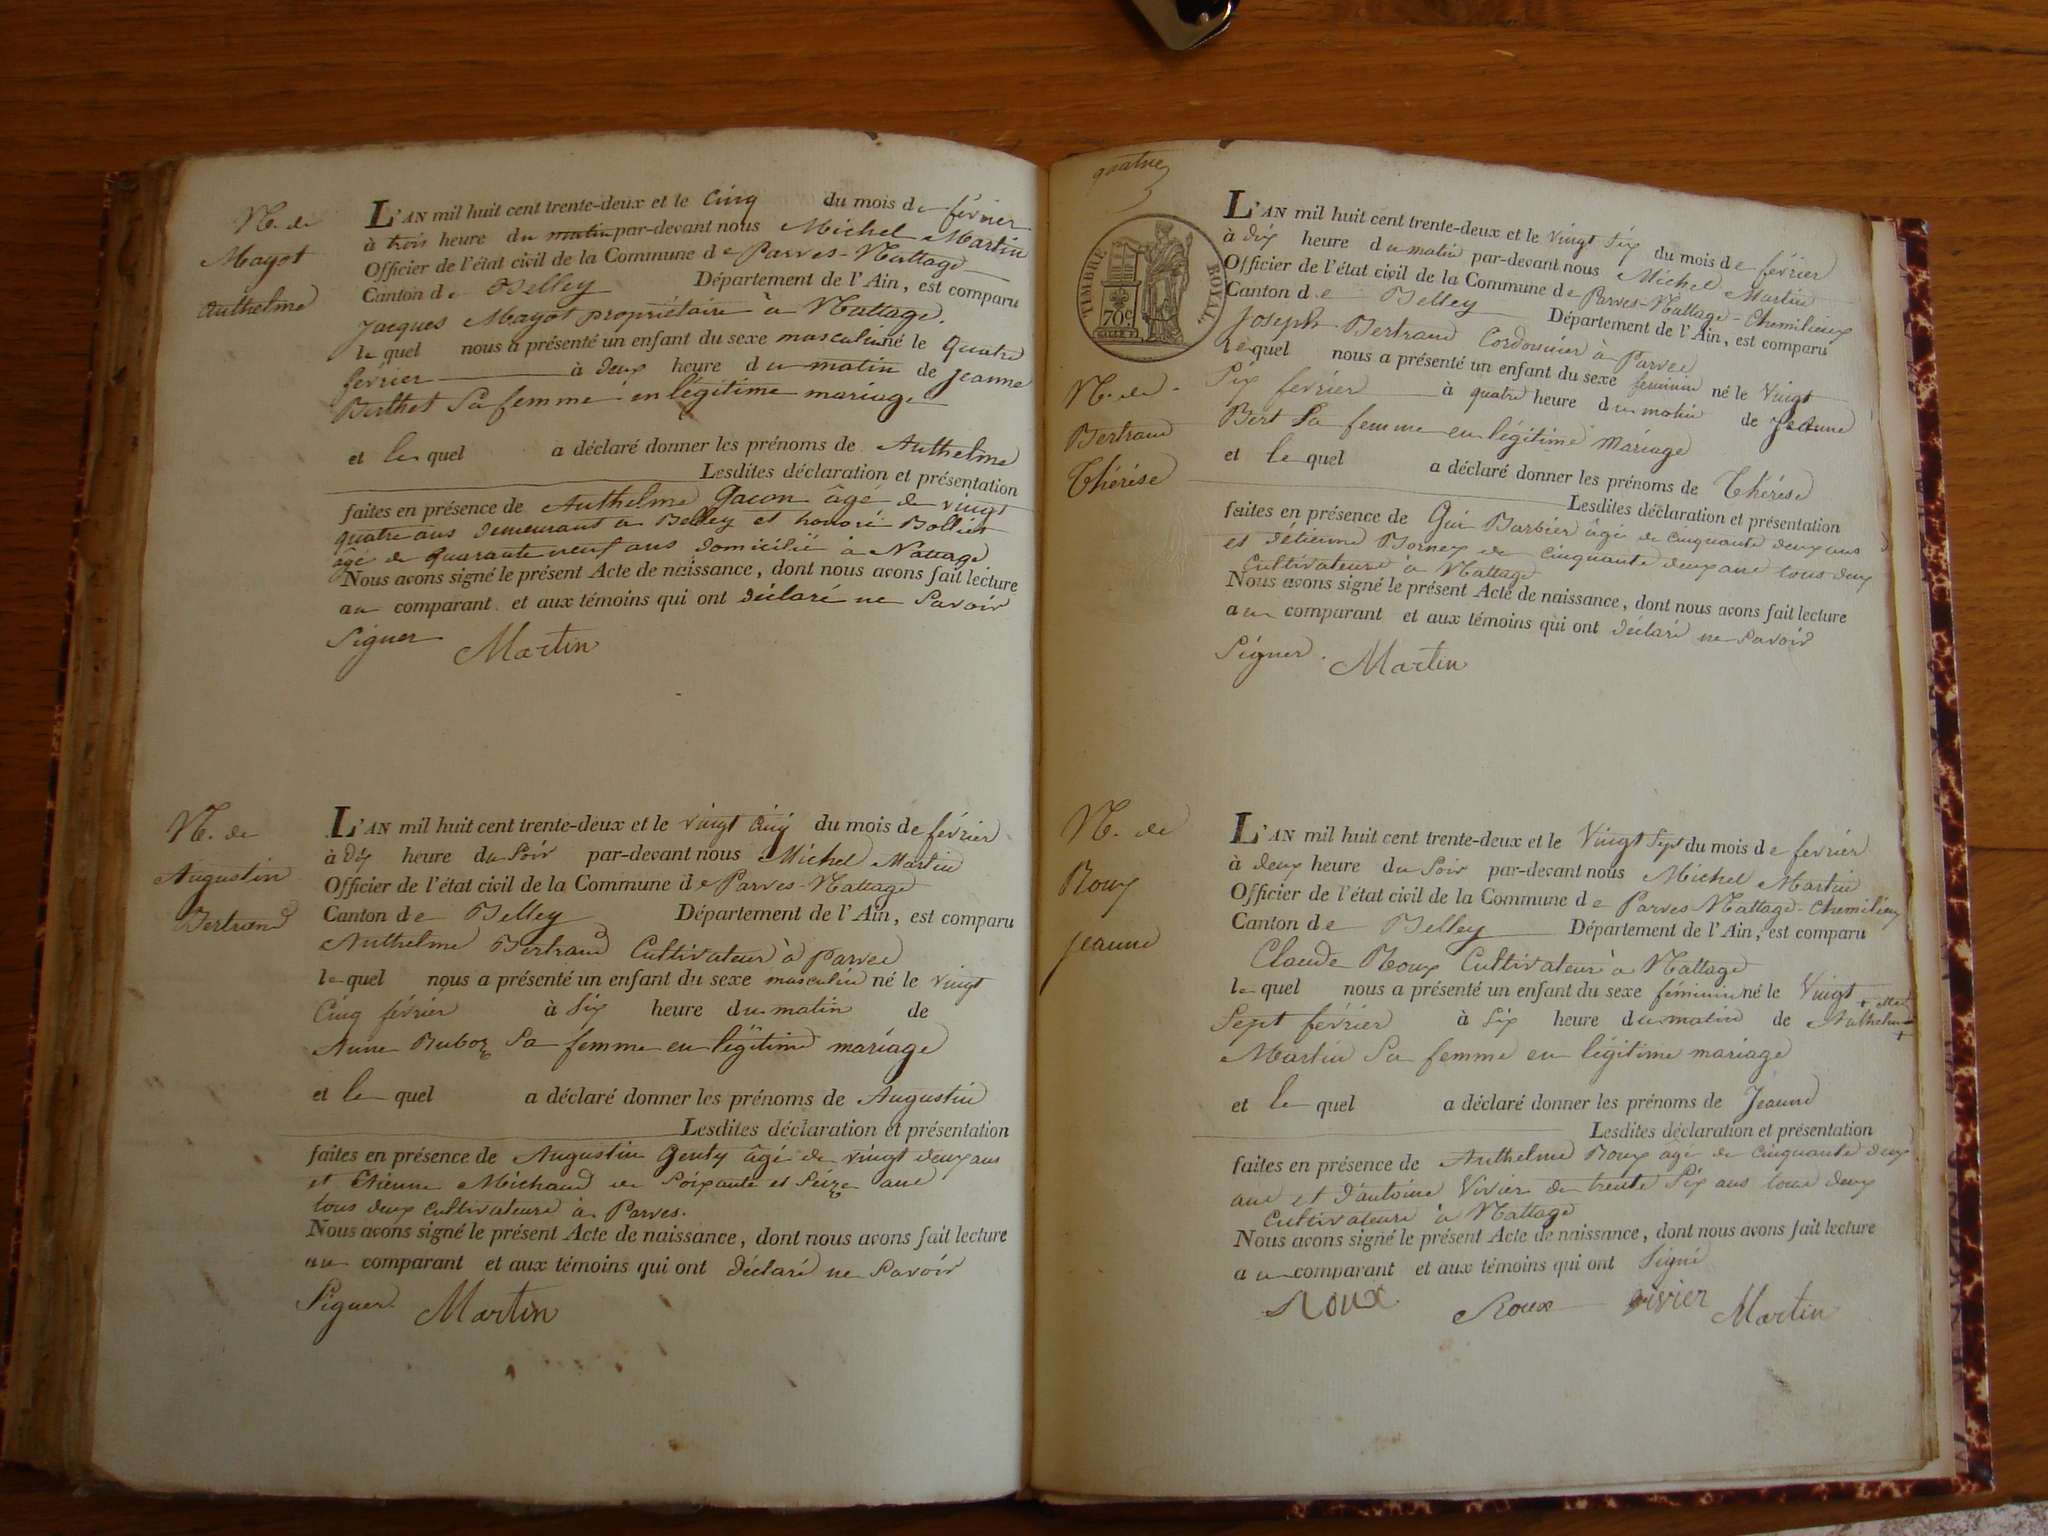 N. de
Magot
Anthelme
L'AN mil huit cent trente-deux et le Cinq du mois de février
à trois heure du matin par-devant nous Michel Martin
Officier de l'état civil de la Commune de Parves-Nattage
Canton de Belley Département de l'Ain, est comparu
Jacques Magot propriétaire à Nattage.
le quel nous a présenté un enfant du sexe masculin né le Quatre
février à deux heure du matin de Jeanne
Berthet Sa femme en légitime mariage
et le quel a déclaré donner les prénoms de Anthelme
Lesdites déclaration et présentation
faites en présence de Anthelme Gacon âgé de vingt
quatre ans demeurant à Belley et honoré Bollier
âgé de quarante neuf ans domicilié à Nattage
Nous avons signé le présent Acte de naissance, dont nous avons fait lecture
au comparant et aux témoins qui ont déclaré ne Savoir
Signer Martin
N. de
Augustin
Bertrand
L'AN mil huit cent trente-deux et le vingt cinq du mois de février
à dix heure du Soir par-devant nous Michel Martin
Officier de l'état civil de la Commune de Parves-Nattage
Canton de Belley Département de l'Ain, est comparu
Anthelme Bertrand Cultivateur à Parves
le quel nous a présenté un enfant du sexe masculin né le vingt
Cinq février à Six heure du matin de
Anne Buboz Sa femme en légitime mariage
et le quel a déclaré donner les prénoms de Augustin
Lesdites déclaration et présentation
faites en présence de Augustin Genty âgé de vingt deux ans
et Etienne Michaud de Soixante et Seize ans
tous deux cultivateurs à Parves.
Nous avons signé le présent Acte de naissance, dont nous avons fait lecture
au comparant et aux témoins qui ont déclaré ne Savoir
Signer. Martin
quatre
TIMBRE ROYAL
70c
N. de
Bertrand
Thérése
L'AN mil huit cent trente-deux et le vingt Six du mois de février
à dix heure du matin par-devant nous Michel Martin
Officier de l'état civil de la Commune de Parves-Nattage-Chemilieux
Canton de Belley Département de l'Ain, est comparu
Joseph Bertrand Cordonnier à Parves
lequel nous a présenté un enfant du sexe feminin né le Vingt
Six février à quatre heure du matin de Jeanne
Bert Sa femme en légitime mariage
et le quel a déclaré donner les prénoms de Thérése
Lesdites déclaration et présentation
faites en présence de Gui Barbier âgé de cinquante deux ans
et détienne Bornex de cinquante deux ans tous deux
Cultivateurs à Nattage
Nous avons signé le présent Acte de naissance, dont nous avons fait lecture
au comparant et aux témoins qui ont déclaré ne Savoir
Signer. Martin
N. de
Roux
Jeanne
L'AN mil huit cent trente-deux et le Vingt Sept du mois de février
à deux heure du Soir par-devant nous Michel Martin
Officier de l'état civil de la Commune de Parves-Nattage-Chemilieux
Canton de Belley Département de l'Ain, est comparu
Claude Roux Cultivateur à Nattage
le quel nous a présenté un enfant du sexe féminin né le Vingt
Sept février à Six heure du matin de Anthelme
Martin Sa femme en légitime mariage
et le quel a déclaré donner les prénoms de Jeanne
Lesdites déclaration et présentation
faites en présence de Anthelme Roux agé de cinquante deux
ans et d'antoine Vivier de trente Six ans tous deux
Cultivateurs à Nattage
Nous avons signé le présent Acte de naissance, dont nous avons fait lecture
au comparant et aux témoins qui ont Signé
Roux Roux vivier Martin